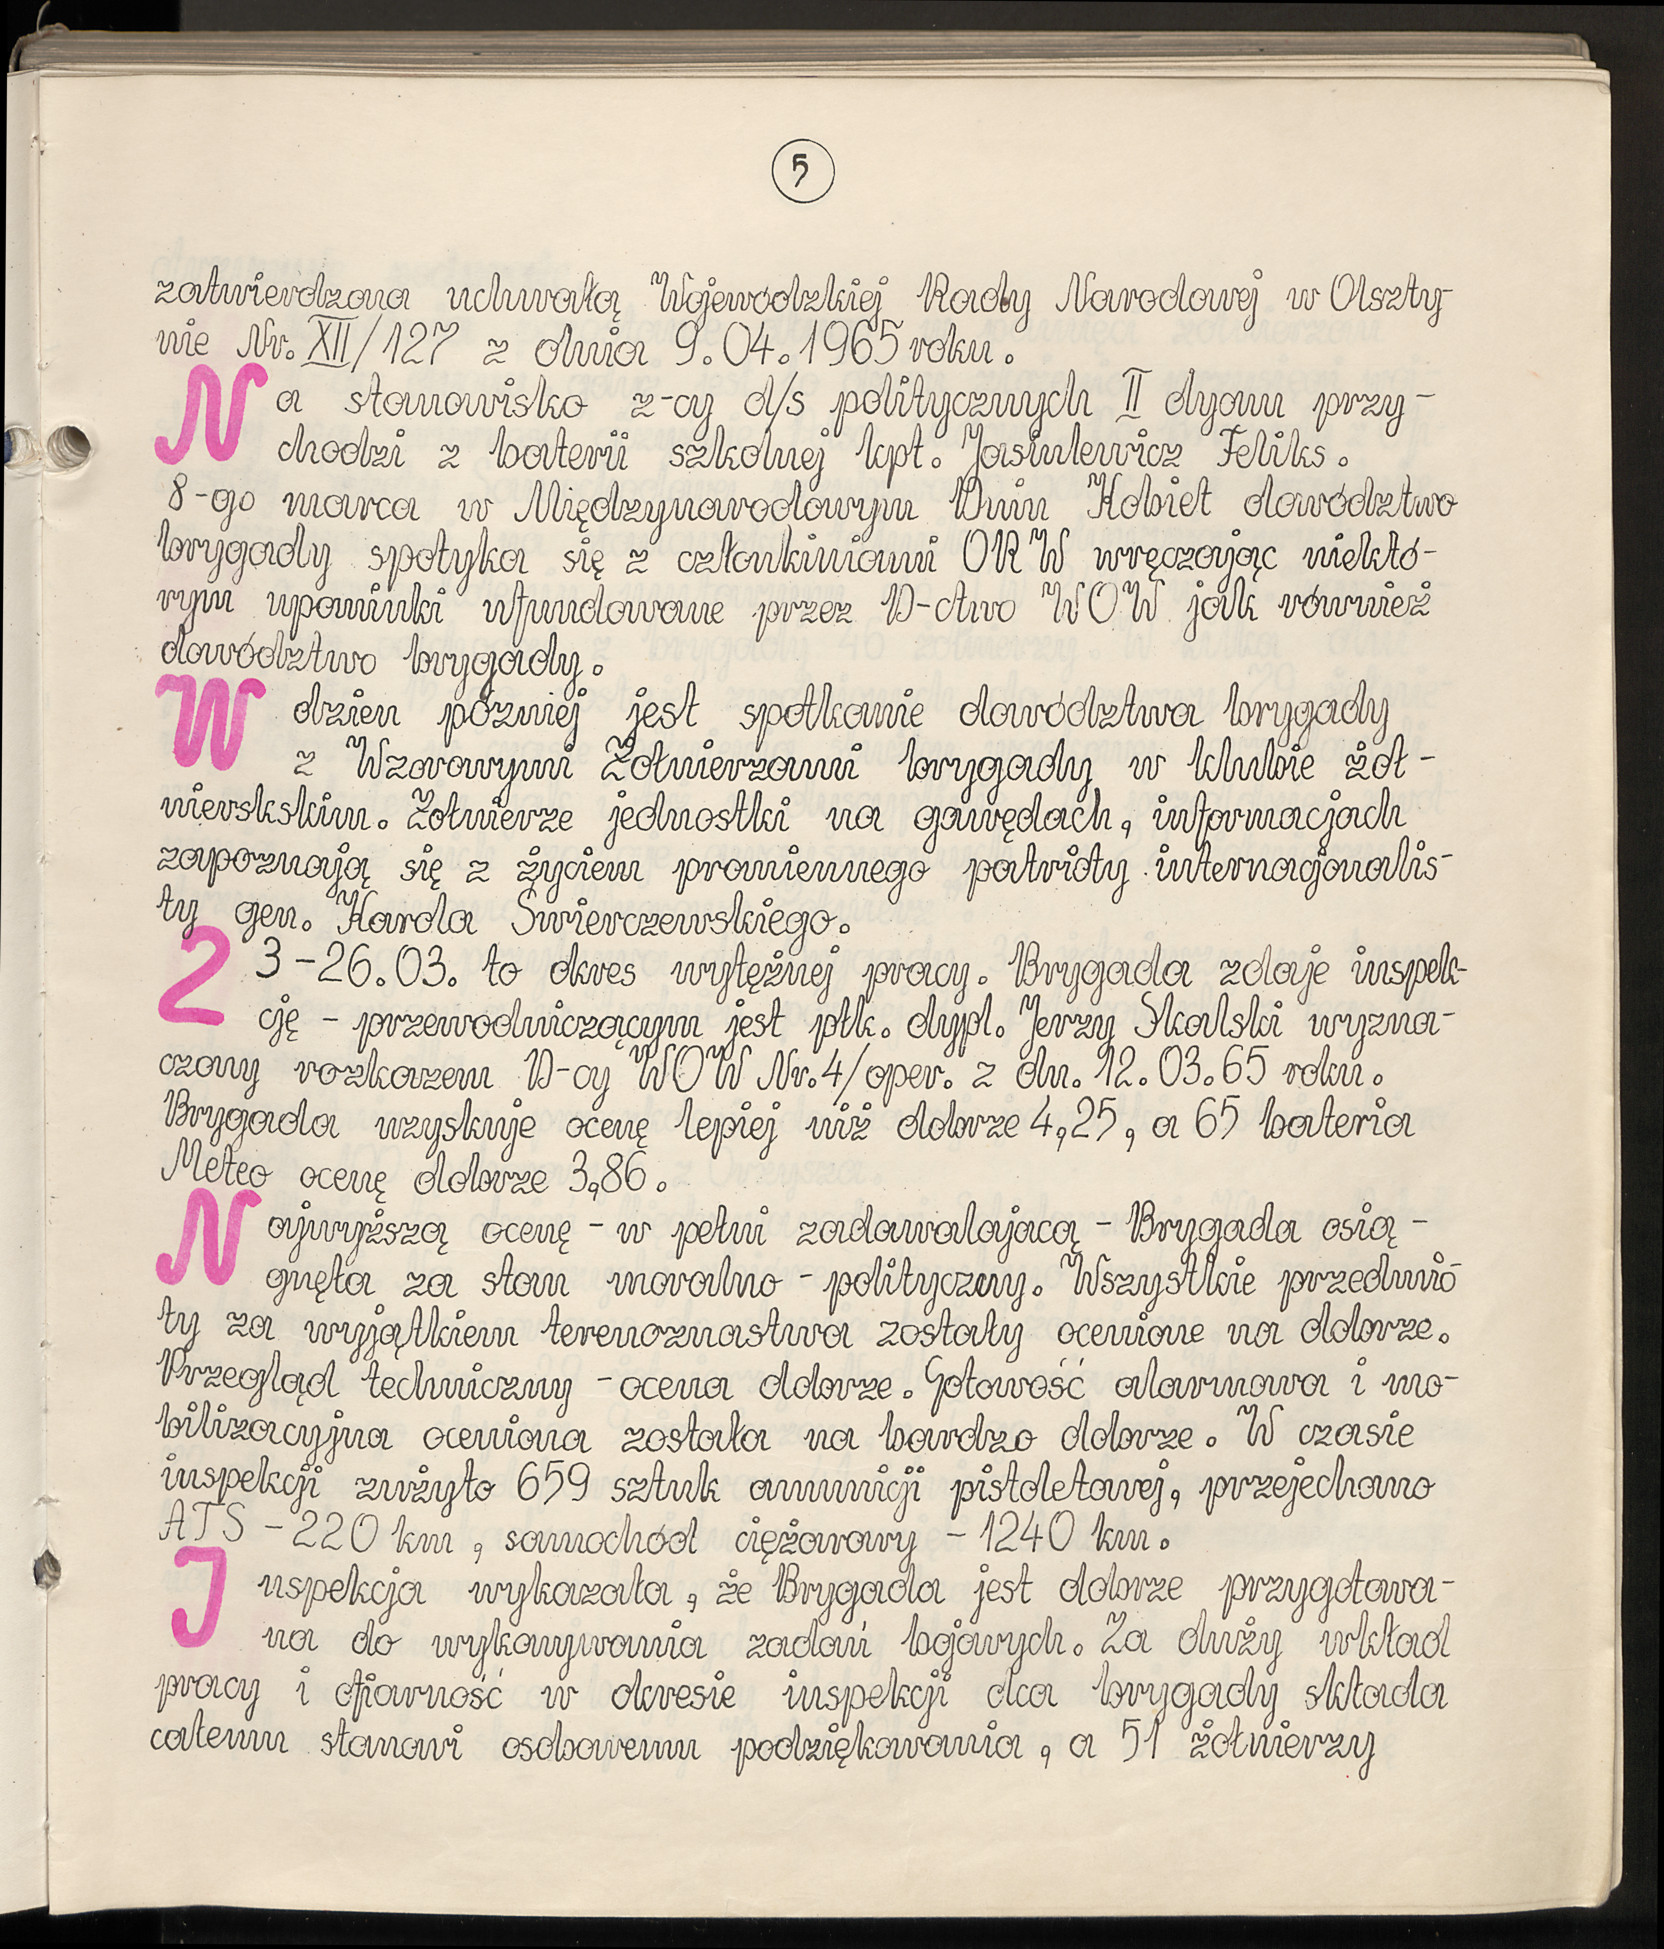 5
zatwierdzona uchwałą Wojewódzkiej Rady Narodowej w Olszty-
nie Nr. XII/127 z dnia 9.04.1965 roku.
Na stanowisko z-cy d/s politycznych II dyonu przy-
chodzi z baterii szkolnej kpt. Jasiulewicz Feliks.
8-go marca w Międzynarodowym Dniu Kobiet dowództwo
brygady spotyka się z członkiniami ORW wręczając niektó-
rym upominki ufundowane przez D-ctwo WOW jak również
dowództwo brygady.
W dzien pózniej jest spotkanie dowództwa brygady
z Wzorowymi Żołnierzami brygady w klubie żoł-
nierskskim. Żołnierze jednostki na gawędach, informacjach
zapoznają się z życiem promiennego patrioty internacjonalis-
ty gen. Karola Swierczewskiego.
23-26.03. to okres wytężnej pracy. Brygada zdaje inspek-
cję - przewodniczącym jest płk. dypl. Jerzy Skalski wyzna-
czony rozkazem D-cy WOW Nr.4/oper. z dn. 12.03.65 roku.
Brygada uzyskuje ocenę lepiej niż dobrze 4,25, a 65 bateria
Meteo ocenę dobrze 3,86.
Najwyższą ocenę - w pełni zadawalajacą - Brygada osią-
gnęła za stan moralno - polityczny. Wszystkie przedmio-
ty za wyjątkiem terenoznastwa zostały ocenione na dobrze.
Przegląd techniczny - ocena dobrze. Gotowość alarmowa i mo-
bilizacyjna oceniona została na bardzo dobrze. W czasie
inspekcji zużyto 659 sztuk amunicji pistoletowej, przejechano
ATS - 220 km, samochód ciężarowy - 1240 km.
Inspekcja wykazała, że Brygada jest dobrze przygotowa-
na do wykonywania zadań bojowych. Za duży wkład
pracy i ofiarność w okresie inspekcji dca brygady składa
całemu stanowi osobowemu podziękowania, a 51 żołnierzy